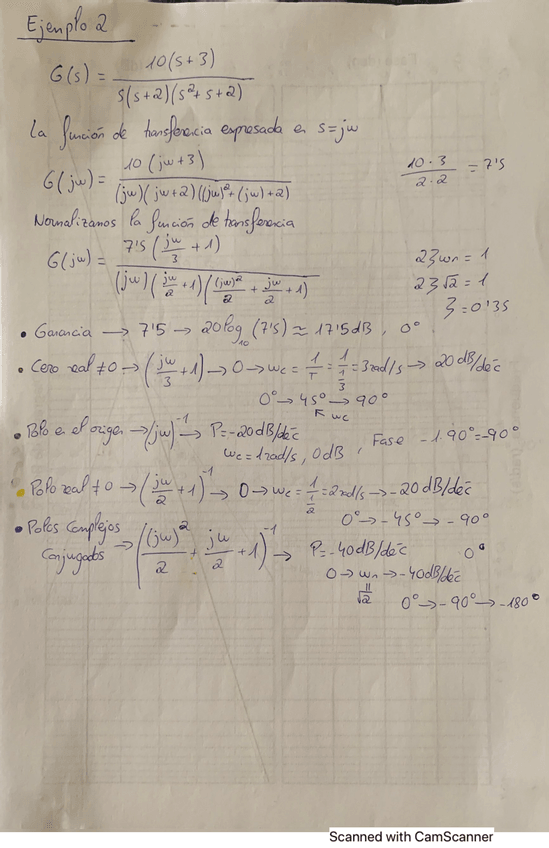 Ejemplo 2
G(s) = 10(s+3) / s(s+2)(s²+s+2)
La función de transferencia expresada en s=jw
G(jw) = 10(jw+3) / (jw)(jw+2)((jw)²+(jw)+2)
10·3 / 2·2 = 7'5
Normalizamos la función de transferencia
G(jw) = 7'5(jw/3 + 1) / (jw)(jw/2 + 1)((jw)²/2 + jw/2 + 1)
2ζwn = 1
2ζ√2 = 1
ζ = 0'35
• Ganancia → 7'5 → 20log₁₀(7'5) ≈ 17'5dB, 0°
• Cero real ≠0 → (jw/3 + 1) → 0 → wc = 1/T = 1/(1/3) = 3rad/s → 20dB/déc
0° → 45° → 90°
↖ wc
• Polo en el origen → (jw)⁻¹ → P=-20dB/déc
wc = 1rad/s, 0dB, Fase -1·90°=-90°
• Polo real ≠0 → (jw/2 + 1)⁻¹ → 0 → wc = 1/(1/2) = 2rad/s → -20dB/déc
0° → -45° → -90°
• Polos Complejos
Conjugados → ((jw)²/2 + jw/2 + 1)⁻¹ → P=-40dB/déc 0°
0 → wn → -40dB/déc
=
√2
0° → -90° → -180°
Scanned with CamScanner